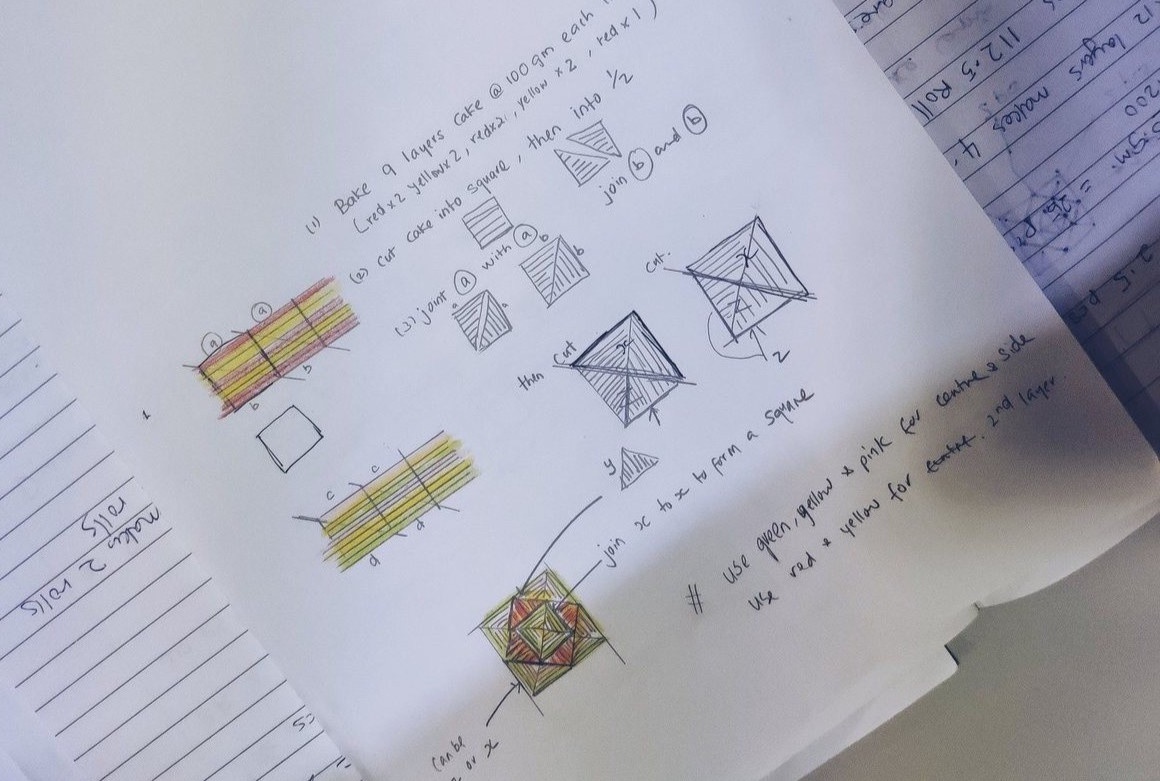 (1) Bake 9 layers cake @ 100gm each
(red x 2 yellow x 2, red x 2, yellow x 2, red x 1)
(2) cut cake into square, then into 1/2
(3) joint a with a
join b and b
a
a
b
b
a
a
b
b
c
c
d
d
Cut.
x
z
then cut
x
y
join x to x to form a square
# use green, yellow & pink for centre & side
use red & yellow for centre. 2nd layer
can be
or x
makes 2 rolls
rolls
112.5 Roll
12 layers
makes 4.
1200